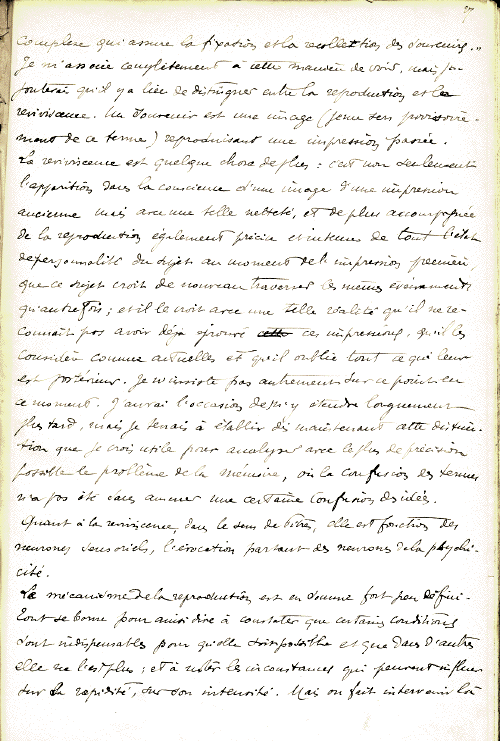 complexe qui assure la fixation et la recollection des souvenirs."
Je m'associe complètement à cette manière de voir, mais j'a-
jouterai qu'il y a lieu de distinguer entre la reproduction et la
reviviscence. Un souvenir est une image (je me sers provisoire-
ment de ce terme) reproduisant une impression passée.
La reviviscence est quelque chose de plus : c'est non seulement
l'apparition dans la conscience d'une image d'une impression
ancienne mais avec une telle netteté, et de plus accompagnée
de la reproduction également précise et intense de tout l'état
de personnalité du sujet au moment de l'impression première,
que ce sujet croit de nouveau traverser les mêmes événements
qu'autrefois ; et il le croit avec une telle réalité qu'il ne re-
connaît pas avoir déjà éprouvé ces impressions, qu'il les
considère comme actuelles et qu'il oublie tout ce qui leur
est postérieur. Je n'insiste pas autrement sur ce point en
ce moment. J'aurai l'occasion de m'y étendre longuement
plus tard, mais je tenais à établir dès maintenant cette distinc-
tion que je crois utile pour analyser avec le plus de précision
possible le problème de la mémoire, où la confusion des termes
n'a pas été sans amener une certaine confusion des idées.
Quant à la reviviscence, dans le sens de elle est fonction des
neurones sensoriels, l'évocation partant des neurones de la psychi-
cité.
Le mécanisme de la reproduction est en somme fort peu défini.
Tout se borne pour ainsi dire à constater que certaines conditions
sont indispensables pour qu'elle soit possible et que dans d'autres
elle ne l'est plus ; et à noter les circonstances qui peuvent influer
sur la rapidité, sur son intensité. Mais on fait intervenir là